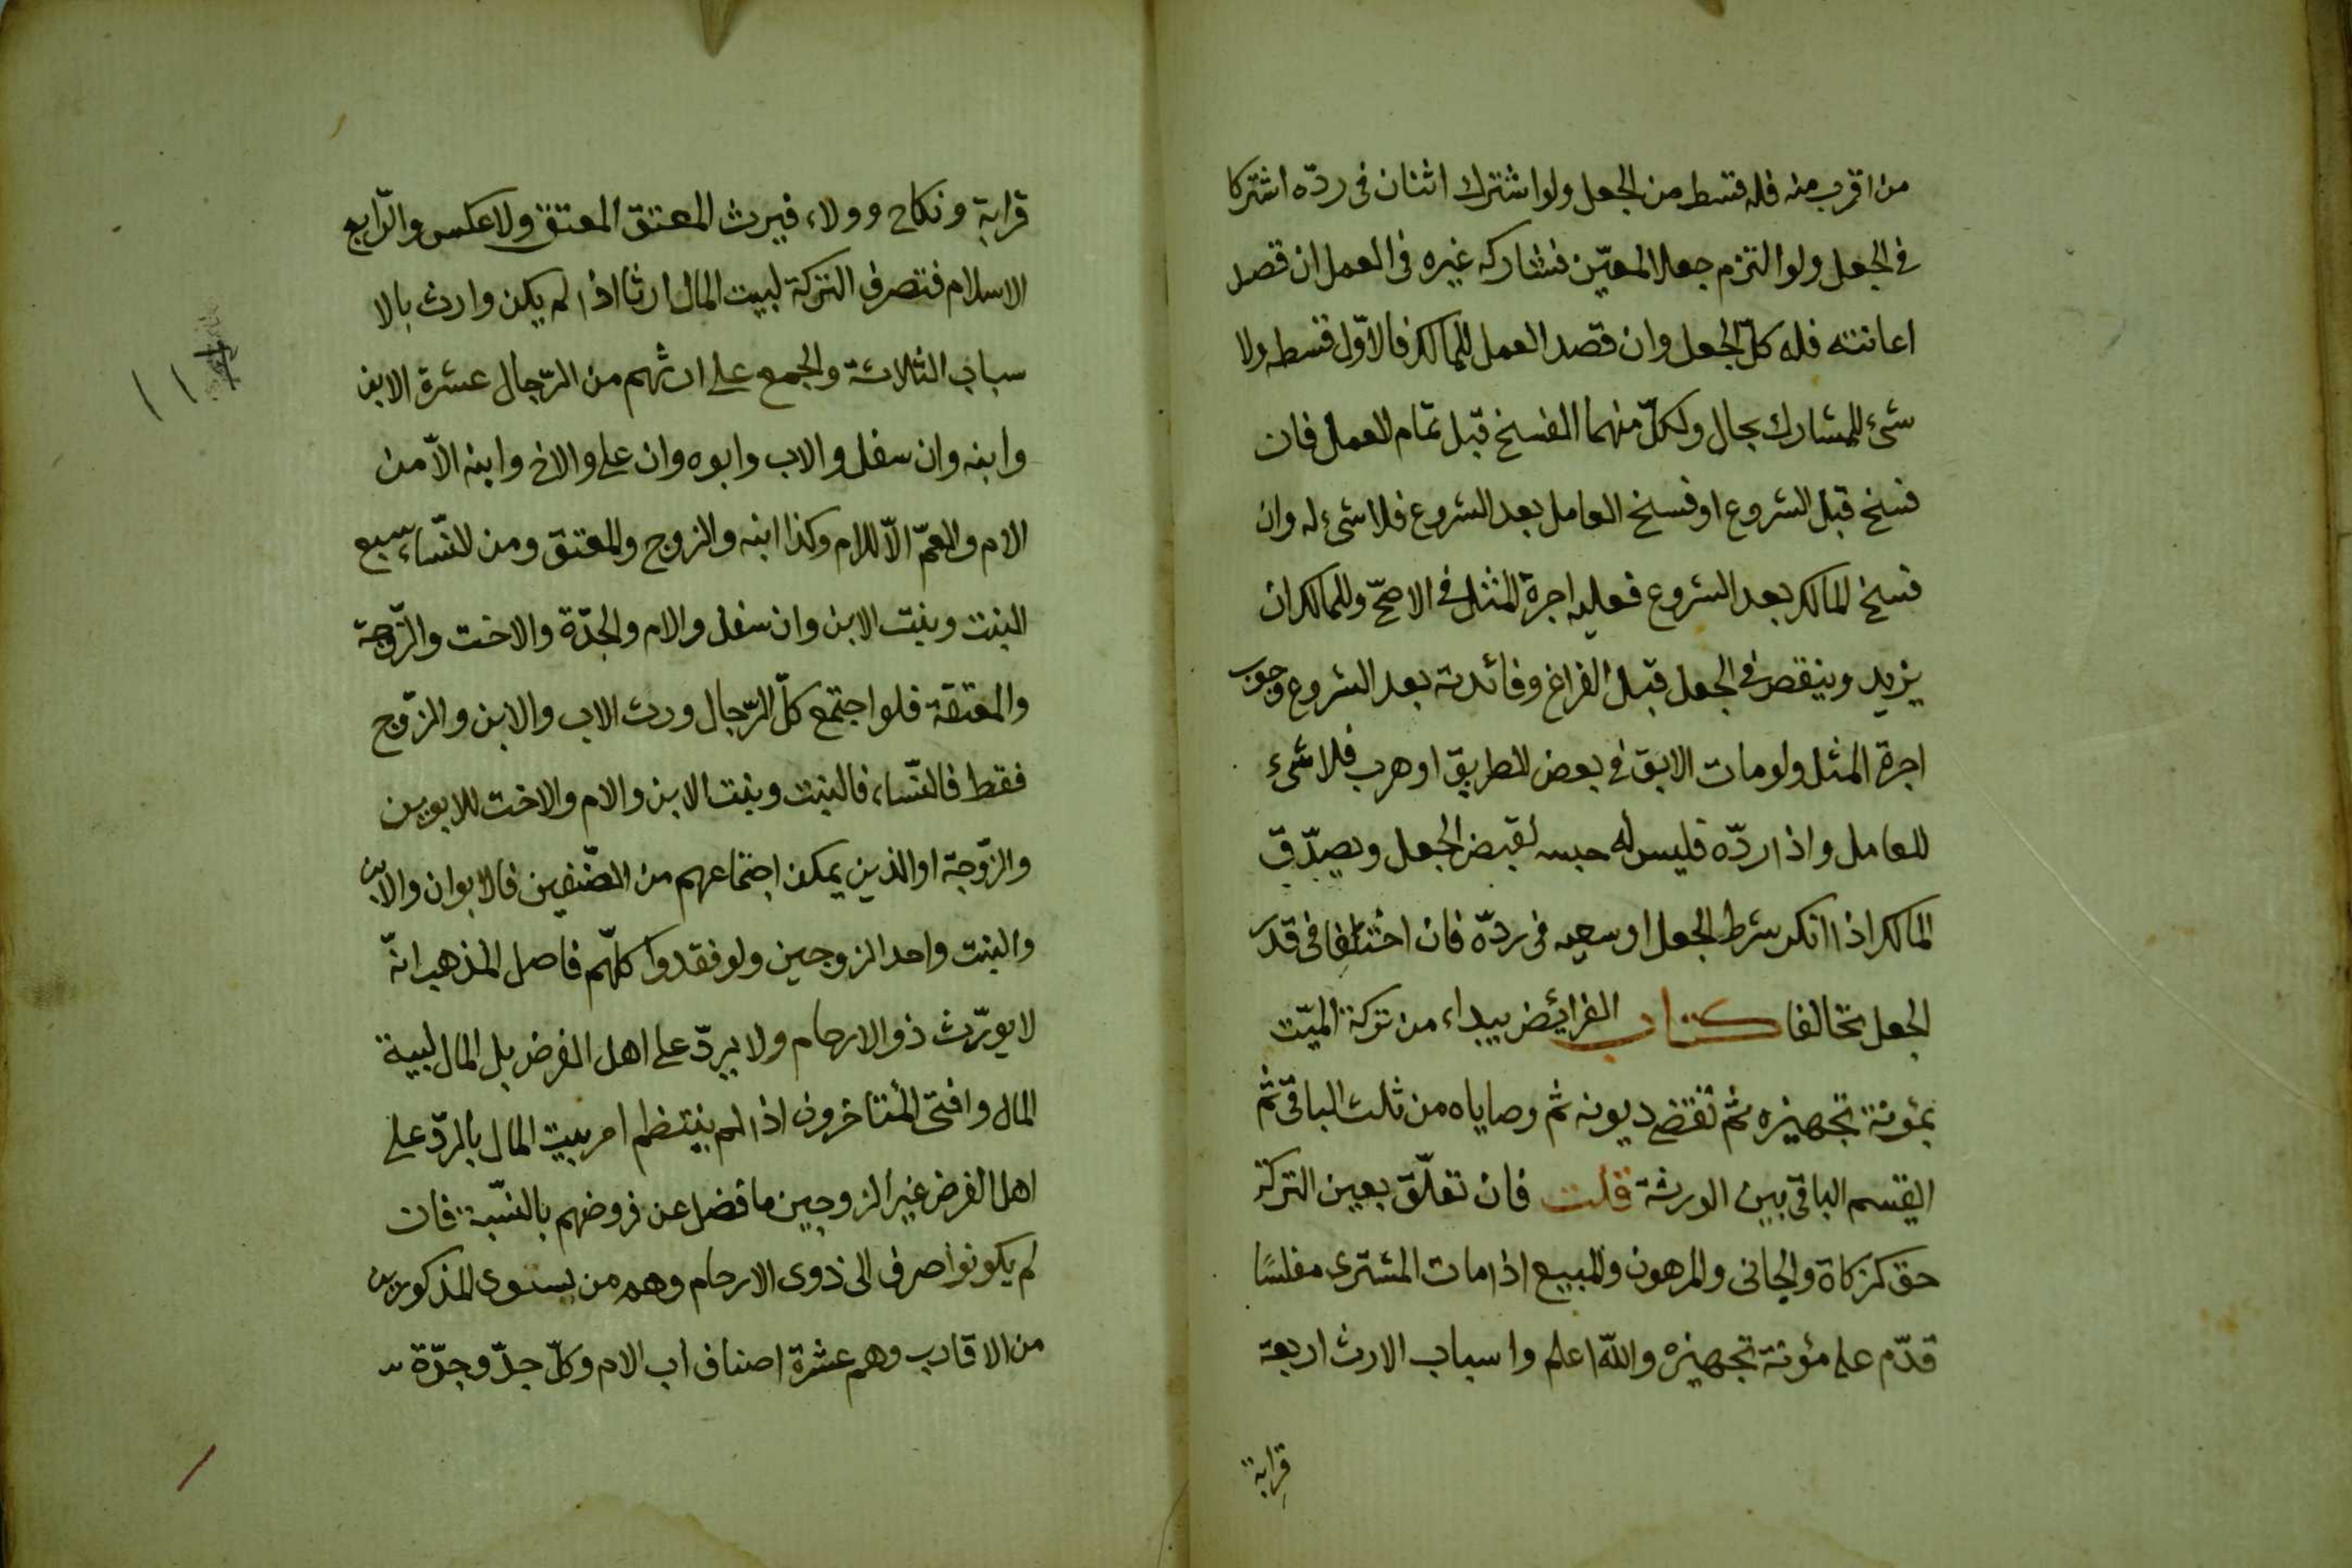 من اقرب منه فله قسط من الجعل ولو اشترك اثنان فى ردّه اشتركا
فى الجعل ولو التزم جعلا لمعيّن فشاركه غيره فى العمل ان قصد
اعانته فله كلّ الجعل وان قصد العمل للمالك فالاوّل قسطه ولا
شئ للمشارك بحال ولكلّ منهما الفسخ قبل تمام العمل فان
فسخ قبل الشروع او فسخ العامل بعد الشروع فلا شئ له وان
فسخ المالك بعد الشروع فعليه اجرة المثل فى الاصحّ وللمالك ان
يزيد وينقص فى الجعل قبل الفراغ وفائدته بعد الشروع وجوب
اجرة المثل ولو مات الابق فى بعض الطريق او هرب فلا شئ
للعامل واذا ردّه فليس له حبسه لقبض الجعل ويصدّق
المالك اذا انكر شرط الجعل او سعيه فى ردّه فان اختلفا فى قدر
الجعل تخالفا كتاب الفرائض يبداء من تركة الميّت
بمؤنة تجهيزه ثم تقضى ديونه ثم وصاياه من ثلث الباقى ثم
يقسم الباقى بين الورثة قلت فان تعلّق بعين التركة
حق كزكاة والجانى والمرهون والمبيع اذا مات المشترى مفلسًا
قدّم على مؤنة تجهيزه والله اعلم واسباب الارث اربعة
قرابة
قرابة ونكاح وولاء فيرث المعتق المعتق ولا عكس والرّابع
الاسلام فتصرف التركة لبيت المال ارثا اذا لم يكن وارث بالا
سباب الثلاثة والجمع على ارثهم من الرّجال عشرة الابن
وابنه وان سفل والاب وابوه وان على والاخ وابنه الاّ من
الام والعمّ الاّ للام وكذا ابنه والزوج والمعتق ومن النّساء سبع
البنت وبنت الابن وان سفل والام والجدّة والاخت والزّوجة
والمعتقة فلو اجتمع كلّ الرّجال ورث الاب والابن والزّوج
فقط فالنّساء فالبنت وبنت الابن والام والاخت للابوين
والزّوجة او الذين يمكن اجتماعهم من الصّنفين فالابوان والابن
والبنت واحد الزوجين ولو فقدوا كلّهم فاصل المذهب انّه
لا يورّث ذو الارحام ولا يردّ على اهل الفرض بل المال لبيت
المال وافتى المتأخرون اذا لم ينتظم امر بيت المال بالردّ على
اهل الفرض غير الزوجين ما فضل عن فروضهم بالنّسبة فان
لم يكونوا صرف الى ذوى الارحام وهم من يسوى المذكورين
من الاقارب وهم عشرة اصناف اب الام وكلّ جدّ وجدّة